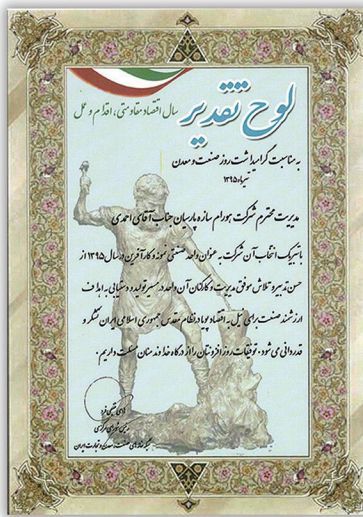 لوح تقدیر
سال اقتصاد مقاومتی، اقدام و عمل
به مناسبت گرامیداشت روز صنعت و معدن
تیرماه ۱۳۹۵
مدیریت محترم شرکت هورام سازه پارسیان جناب آقای احمدی
با تبریک انتخاب آن شرکت به عنوان واحد صنعتی نمونه و کارآفرین در سال ۱۳۹۵ از
حسن تدبیر و تلاش موفق مدیریت و کارکنان آن واحد در مسیر تولید و دستیابی به اهداف
ارزشمند صنعت برای نیل به اقتصاد پویا در نظام مقدس جمهوری اسلامی ایران تشکر و
قدردانی می شود. توفیقات روز افزونتان را از درگاه خداوند منان مسئلت داریم.